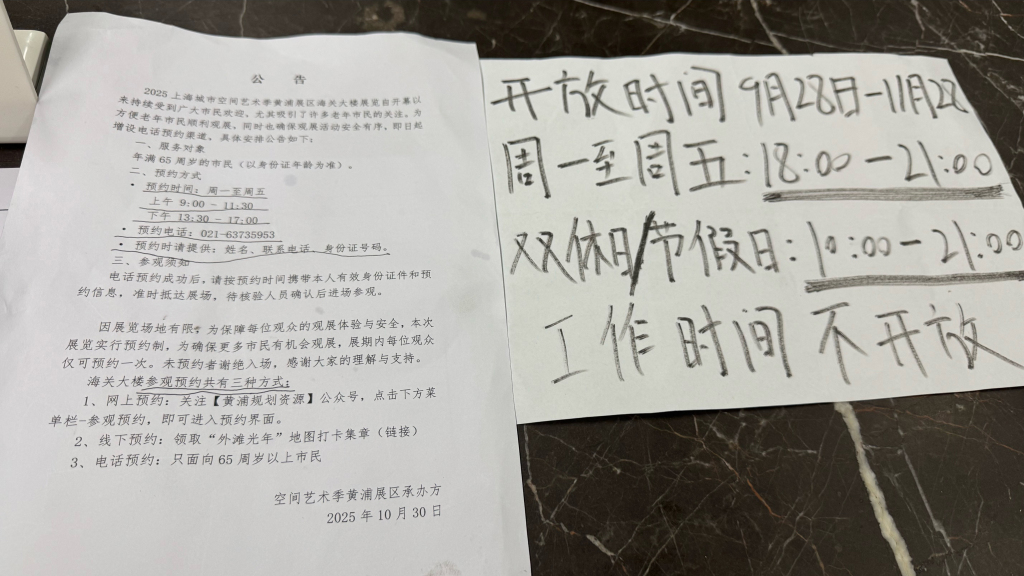 公 告
2025上海城市空间艺术季黄浦展区海关大楼展览自开幕以
来持续受到广大市民欢迎，尤其吸引了许多老年市民的关注。为
方便老年市民顺利观展，同时也确保观展活动安全有序，即日起
增设电话预约渠道，具体安排公告如下：
一、服务对象
年满65周岁的市民（以身份证年龄为准）。
二、预约方式
• 预约时间：周一至周五
上午 9:00 - 11:30
下午 13:30 - 17:00
• 预约电话：021-63735953
• 预约时请提供：姓名、联系电话、身份证号码。
三、参观须知
电话预约成功后，请按预约时间携带本人有效身份证件和预
约信息，准时抵达展场，待核验人员确认后进场参观。
因展览场地有限，为保障每位观众的观展体验与安全，本次
展览实行预约制，为确保更多市民有机会观展，展期内每位观众
仅可预约一次。未预约者谢绝入场，感谢大家的理解与支持。
海关大楼参观预约共有三种方式：
1、网上预约：关注【黄浦规划资源】公众号，点击下方菜
单栏-参观预约，即可进入预约界面。
2、线下预约：领取“外滩光年”地图打卡集章（链接）
3、电话预约：只面向65周岁以上市民
空间艺术季黄浦展区承办方
2025年10月30日
开放时间 9月28日-11月28
周一至周五：18:00-21:00
双休日/节假日：10:00-21:00
工作时间不开放